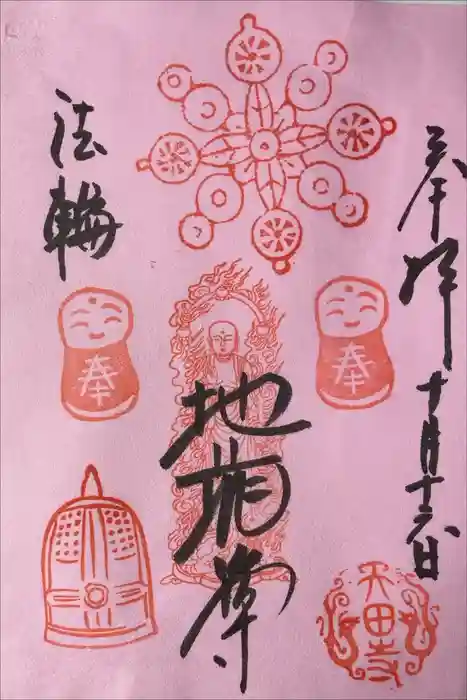 奉拝
十月十六日
地蔵尊
法輪
奉
奉